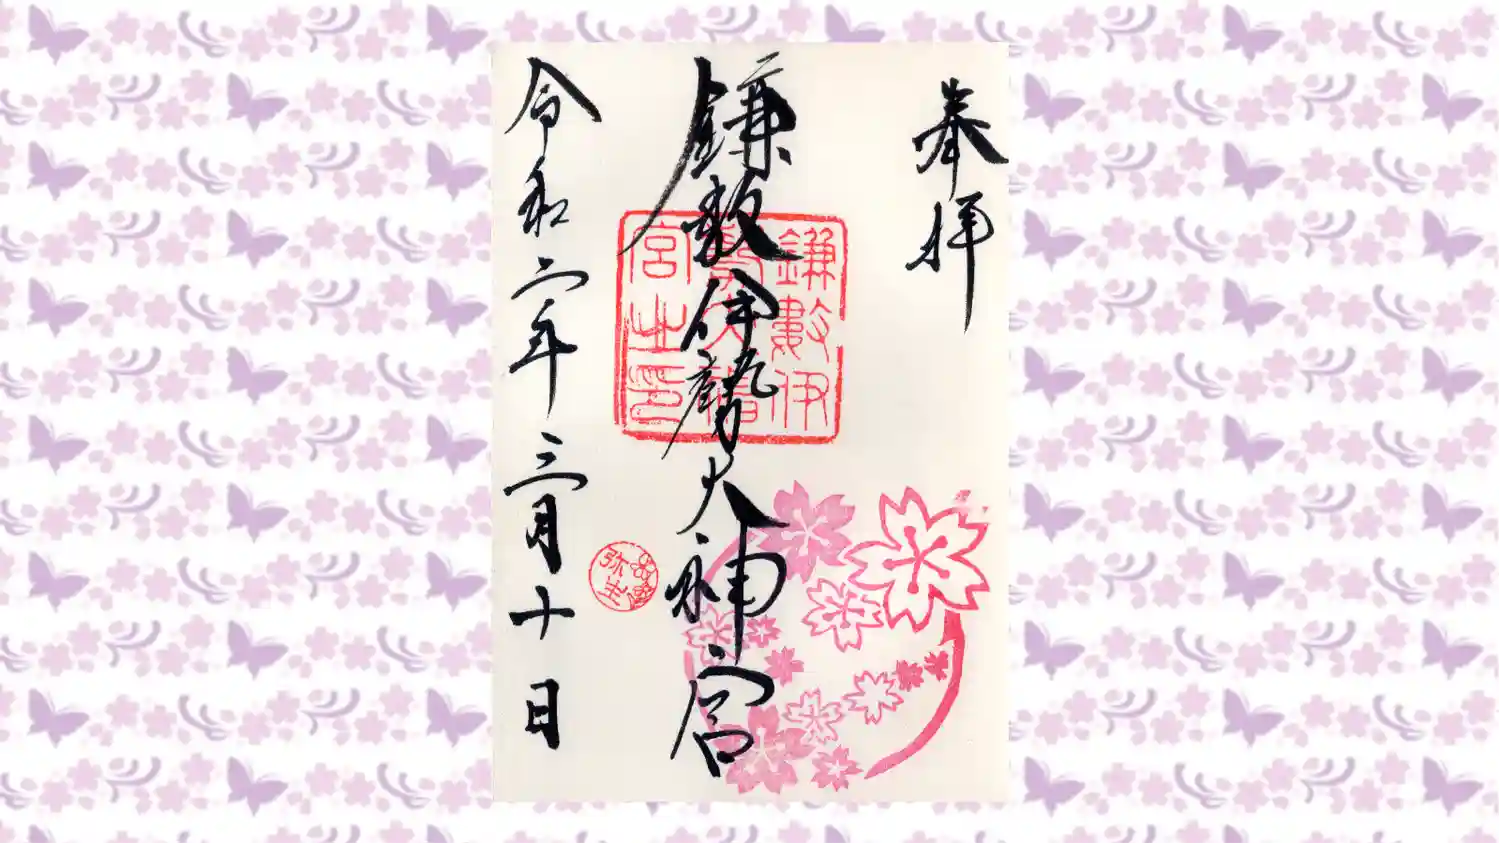 奉拝
鎌数伊勢大神宮
令和二年三月十日
鎌數伊
勢大神
宮之印
弥生